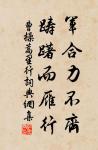 軍合力不齊
躊躇而雁行
曹操蒿里行詞典網集